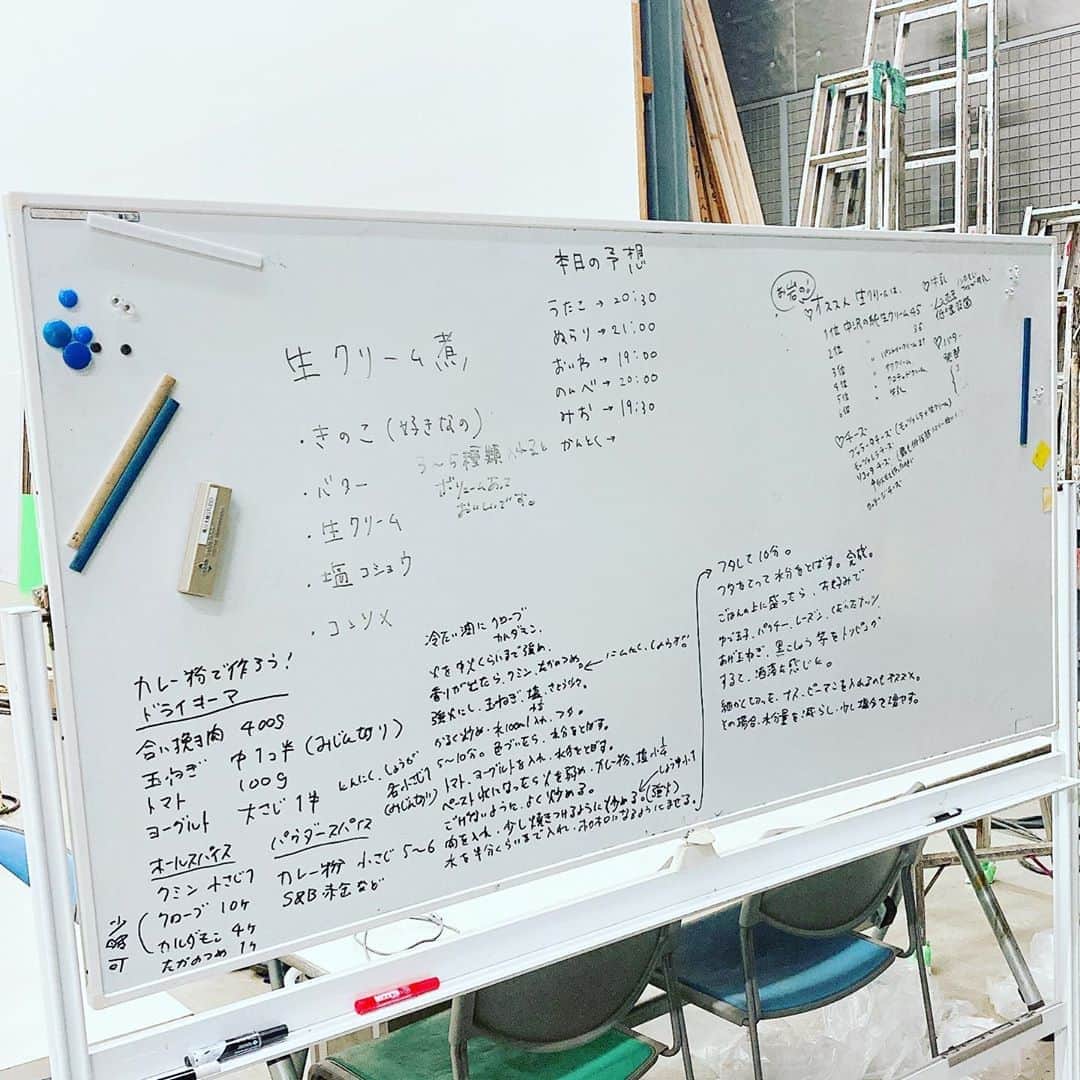 本日の予想
うたこ→20:30
ぬらり→21:00
おいわ→19:00
のんべ→20:00
みお→19:30
かんとく→
生クリーム煮
・きのこ(好きなの)
3〜5種類入れると
ボリュームあって
おいしいです。
・バター
・生クリーム
・塩コショウ
・コンソメ
お岩の!
♡オススメ 生クリームは、
1位 中沢の純生クリーム45
2位 〃 36
3位 〃
4位 〃 サワクリーム
5位 〃 クロテッドクリーム
6位 〃 牛乳
♡牛乳
♡バター
♡チーズ
ブラータチーズ(モッツァレラ+生クリーム)
モッツァレラチーズ
リコッタチーズ
カッテージチーズ
カレー粉で作ろう!
ドライキーマ
合い挽き肉 400g
玉ねぎ 中1つ半(みじん切り)
トマト 100g
ヨーグルト 大さじ1半
にんにく、しょうが
各小さじ1
(みじん切り)
ホールスパイス
クミン 小さじ1
クローブ 10ヶ
カルダモン 4ヶ
たかのつめ 1ヶ
省略可
パウダースパイス
カレー粉 小さじ5〜6
S&B 赤缶など
冷たい油にクローブ
カルダモン、
火を中火くらいまで強め、
香りが出たら、クミン、たかのつめ。←にんにく、しょうが。
強火にし、玉ねぎ、塩、さとう少々。
かるく炒め、水100ml入れ、フタ。
5〜10分。色づいたら、水分をとばす。
トマト、ヨーグルトを入れ、水分をとばす。
ペースト状になったら火を弱め、カレー粉、塩小1/2
こげないように、よく炒める。
しょうゆ小1
肉を入れ、少し焼きつけるように炒める。(強火)
水を半分くらいまで入れ、ホロホロになるようにまぜる。
フタして10分。
フタをとって水分をとばす。完成。
ごはんの上に盛ったら、お好みで
ゆで玉子、パクチー、レーズン、
あげ玉ねぎ、黒こしょう 等をトッピング
すると、洒落た感じに。
細かく切った、ナス、ピーマンを入れるのもオススメ。
その場合、水分量を減らし、少し塩分を増やす。